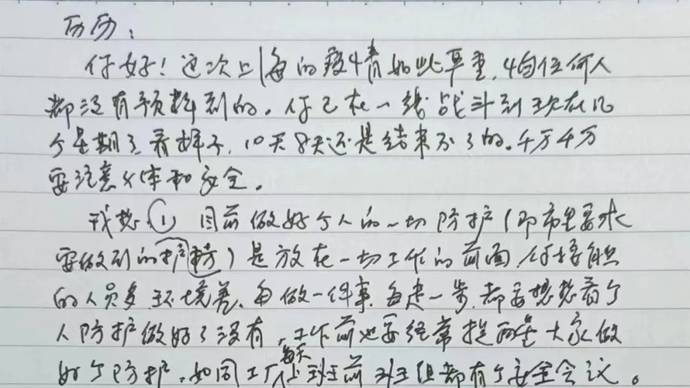 历历：
你好！这次上海的疫情如此严重，4旬任何人
都没有预料到的。你已在一线战斗到现在几
个星期了，看样子，10天8天还是结束不了的。千万千万
要注意身体和安全。
我想，① 目前做好个人的一切防护（即市里要求
要做到的护防）是放在一切工作的前面，你接触
的人员多，环境差，每做一件事，每走一步，都要想想看个
人防护做好了没有，工作前也要经常提醒大家做
好个防护，如同工厂每天上班前班组都有个安全会议。